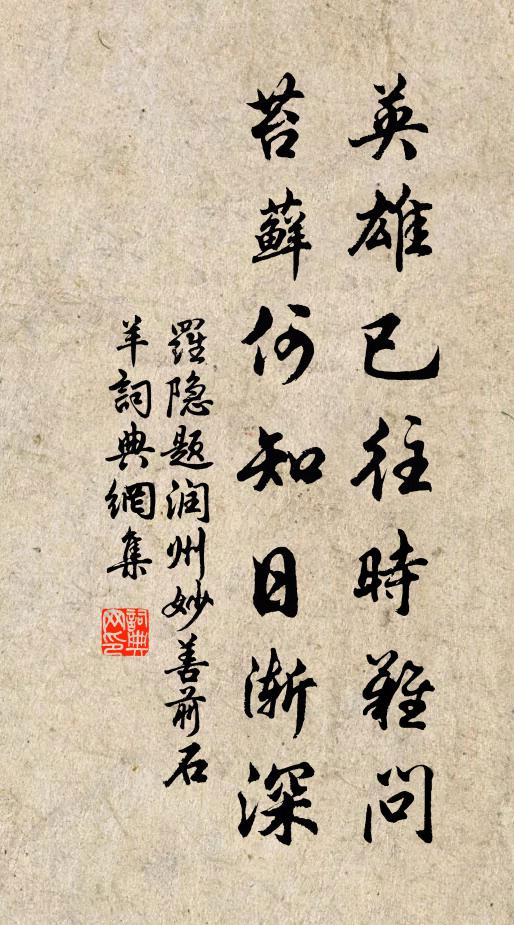 英雄已往時難問
苔蘚何知日漸深
羅隐题润州妙善前石
羊詞典網集
詞典
网印